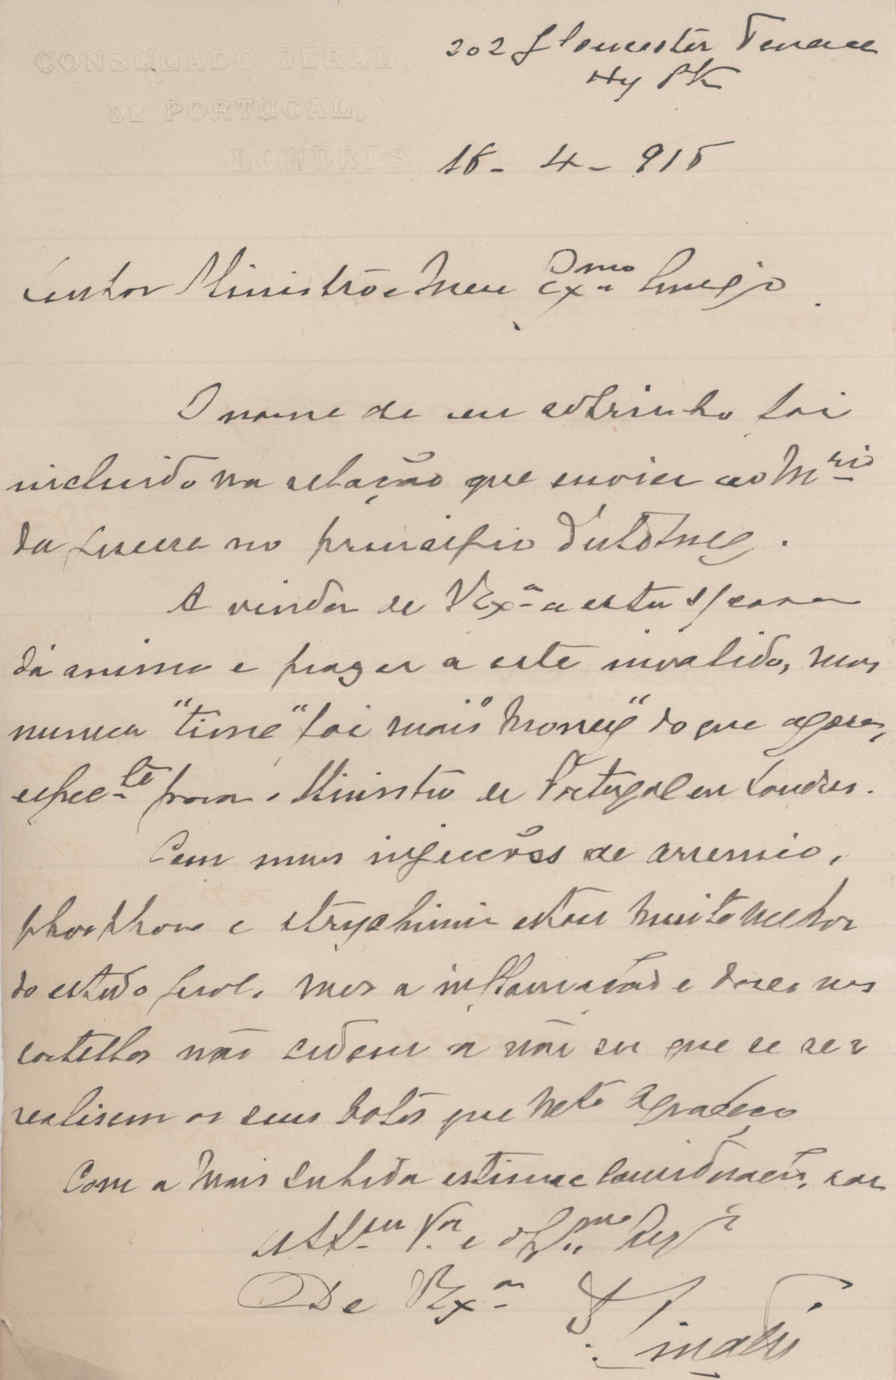 CONSULADO GERAL
DE PORTUGAL,
LONDRES
202 Gloucester Terrace
Hy Pk
18 - 4 - 918
Senhor Ministro e meu Exmo Amigo
O nome de seu sobrinho foi
incluido na relação que enviei ao Mrio
da Guerra no principio d'outubro.
A vinda de VExa a esta
dá animo e prazer a este invalido, mas
nunca "time" foi mais "money" do que agora,
especte para o Ministro de Portugal em Londres.
Com mais injecções de arsenico,
phosphoro e strychinina estou muito melhor
do estado geral. mas a inflamação e dores nas
costellas não cedem a não ser que se
realisem os seus votos que mto agradeço
Com a mais subida estima e consideração, sou
De VExa